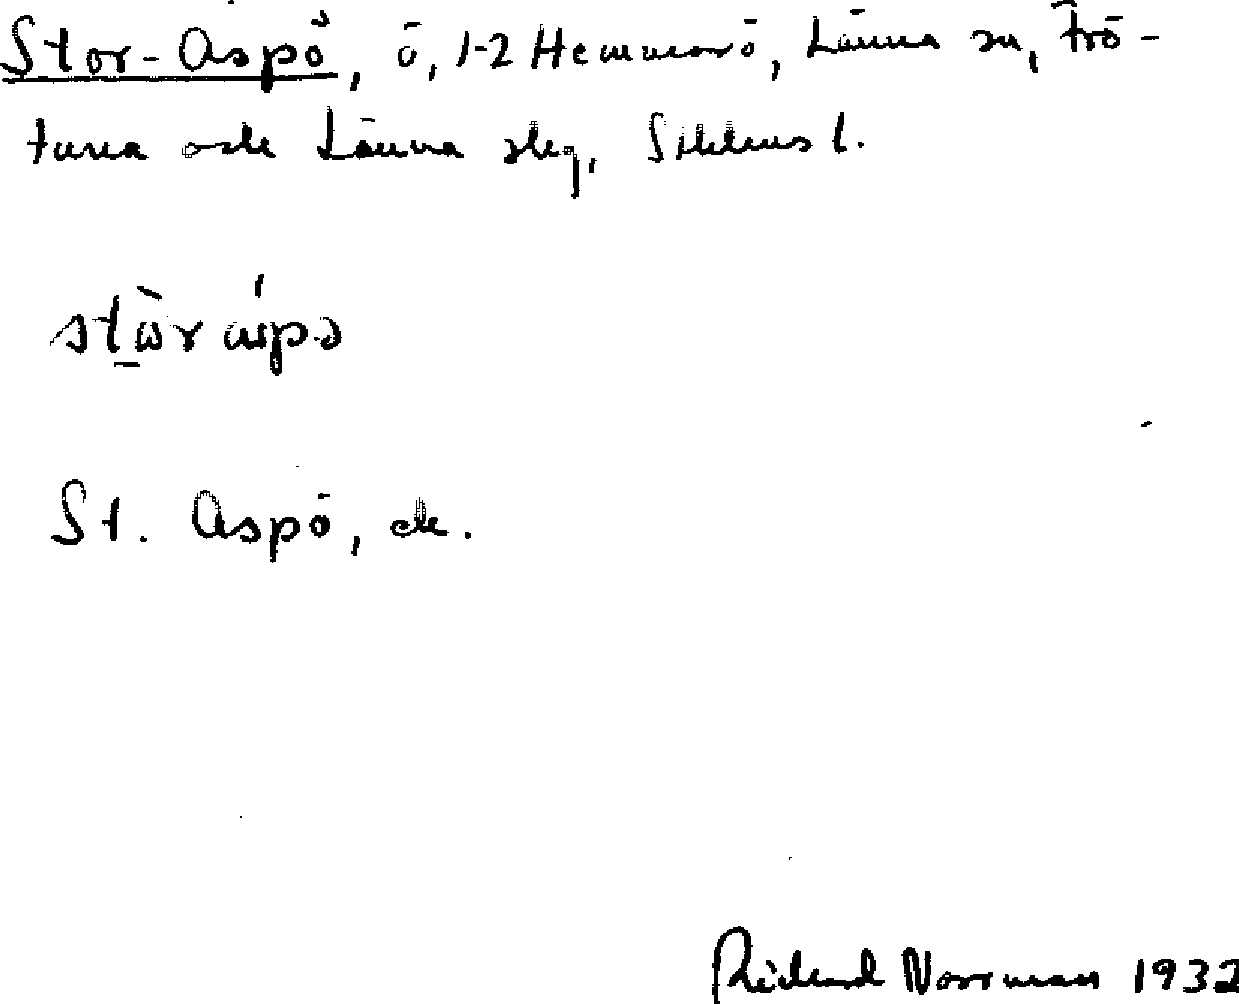 Stor-Aspö, ö, 1-2 Hemmarö, Länna sn, Frö-
tuna och Länna skg, Sthlms l.
stὼr áspə
St. Aspö, ek.
Richard Norrman 1932